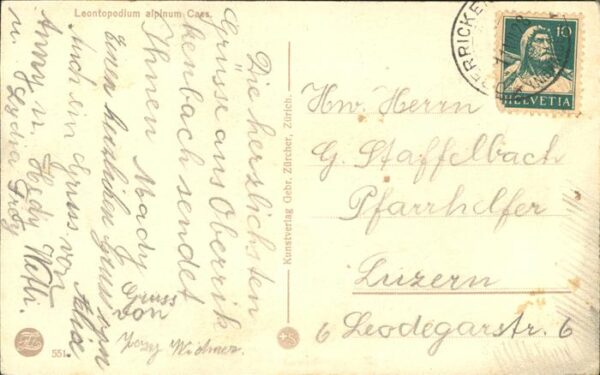 Leontopodium alpinum Cass.
Die herzlichsten
Grüsse aus Oberrik
kenbach sendet
Ihnen Mady
Einen herzlichen gruss von
Alia
Auch ein Gruss von
Anny u. Hedy Wetli.
u. Lydia
Gruss
von
Widmer.
551
Kunstverlag Gebr. Zürcher, Zürich.
ERRICKE
10
HELVETIA
Hw. Herrn
G. Staffelbach
Pfarrhelfer
Luzern
6 Leodegarstr. 6